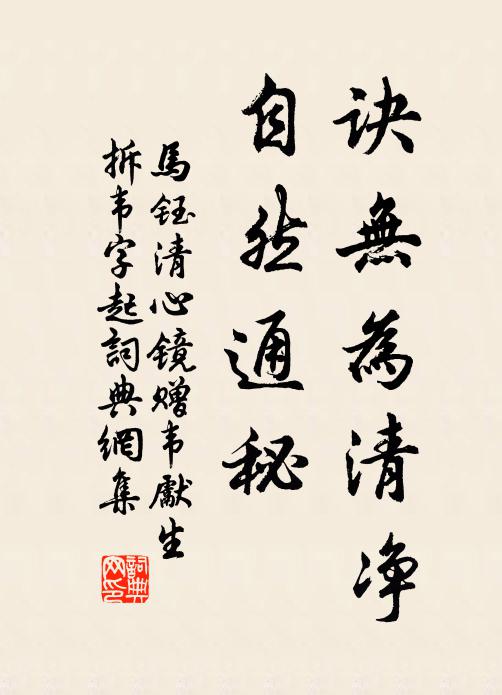 訣無為清净
自然通秘
馬鈺清心镜赠韦獻生
拆韦字起詞典網集
詞典
网印